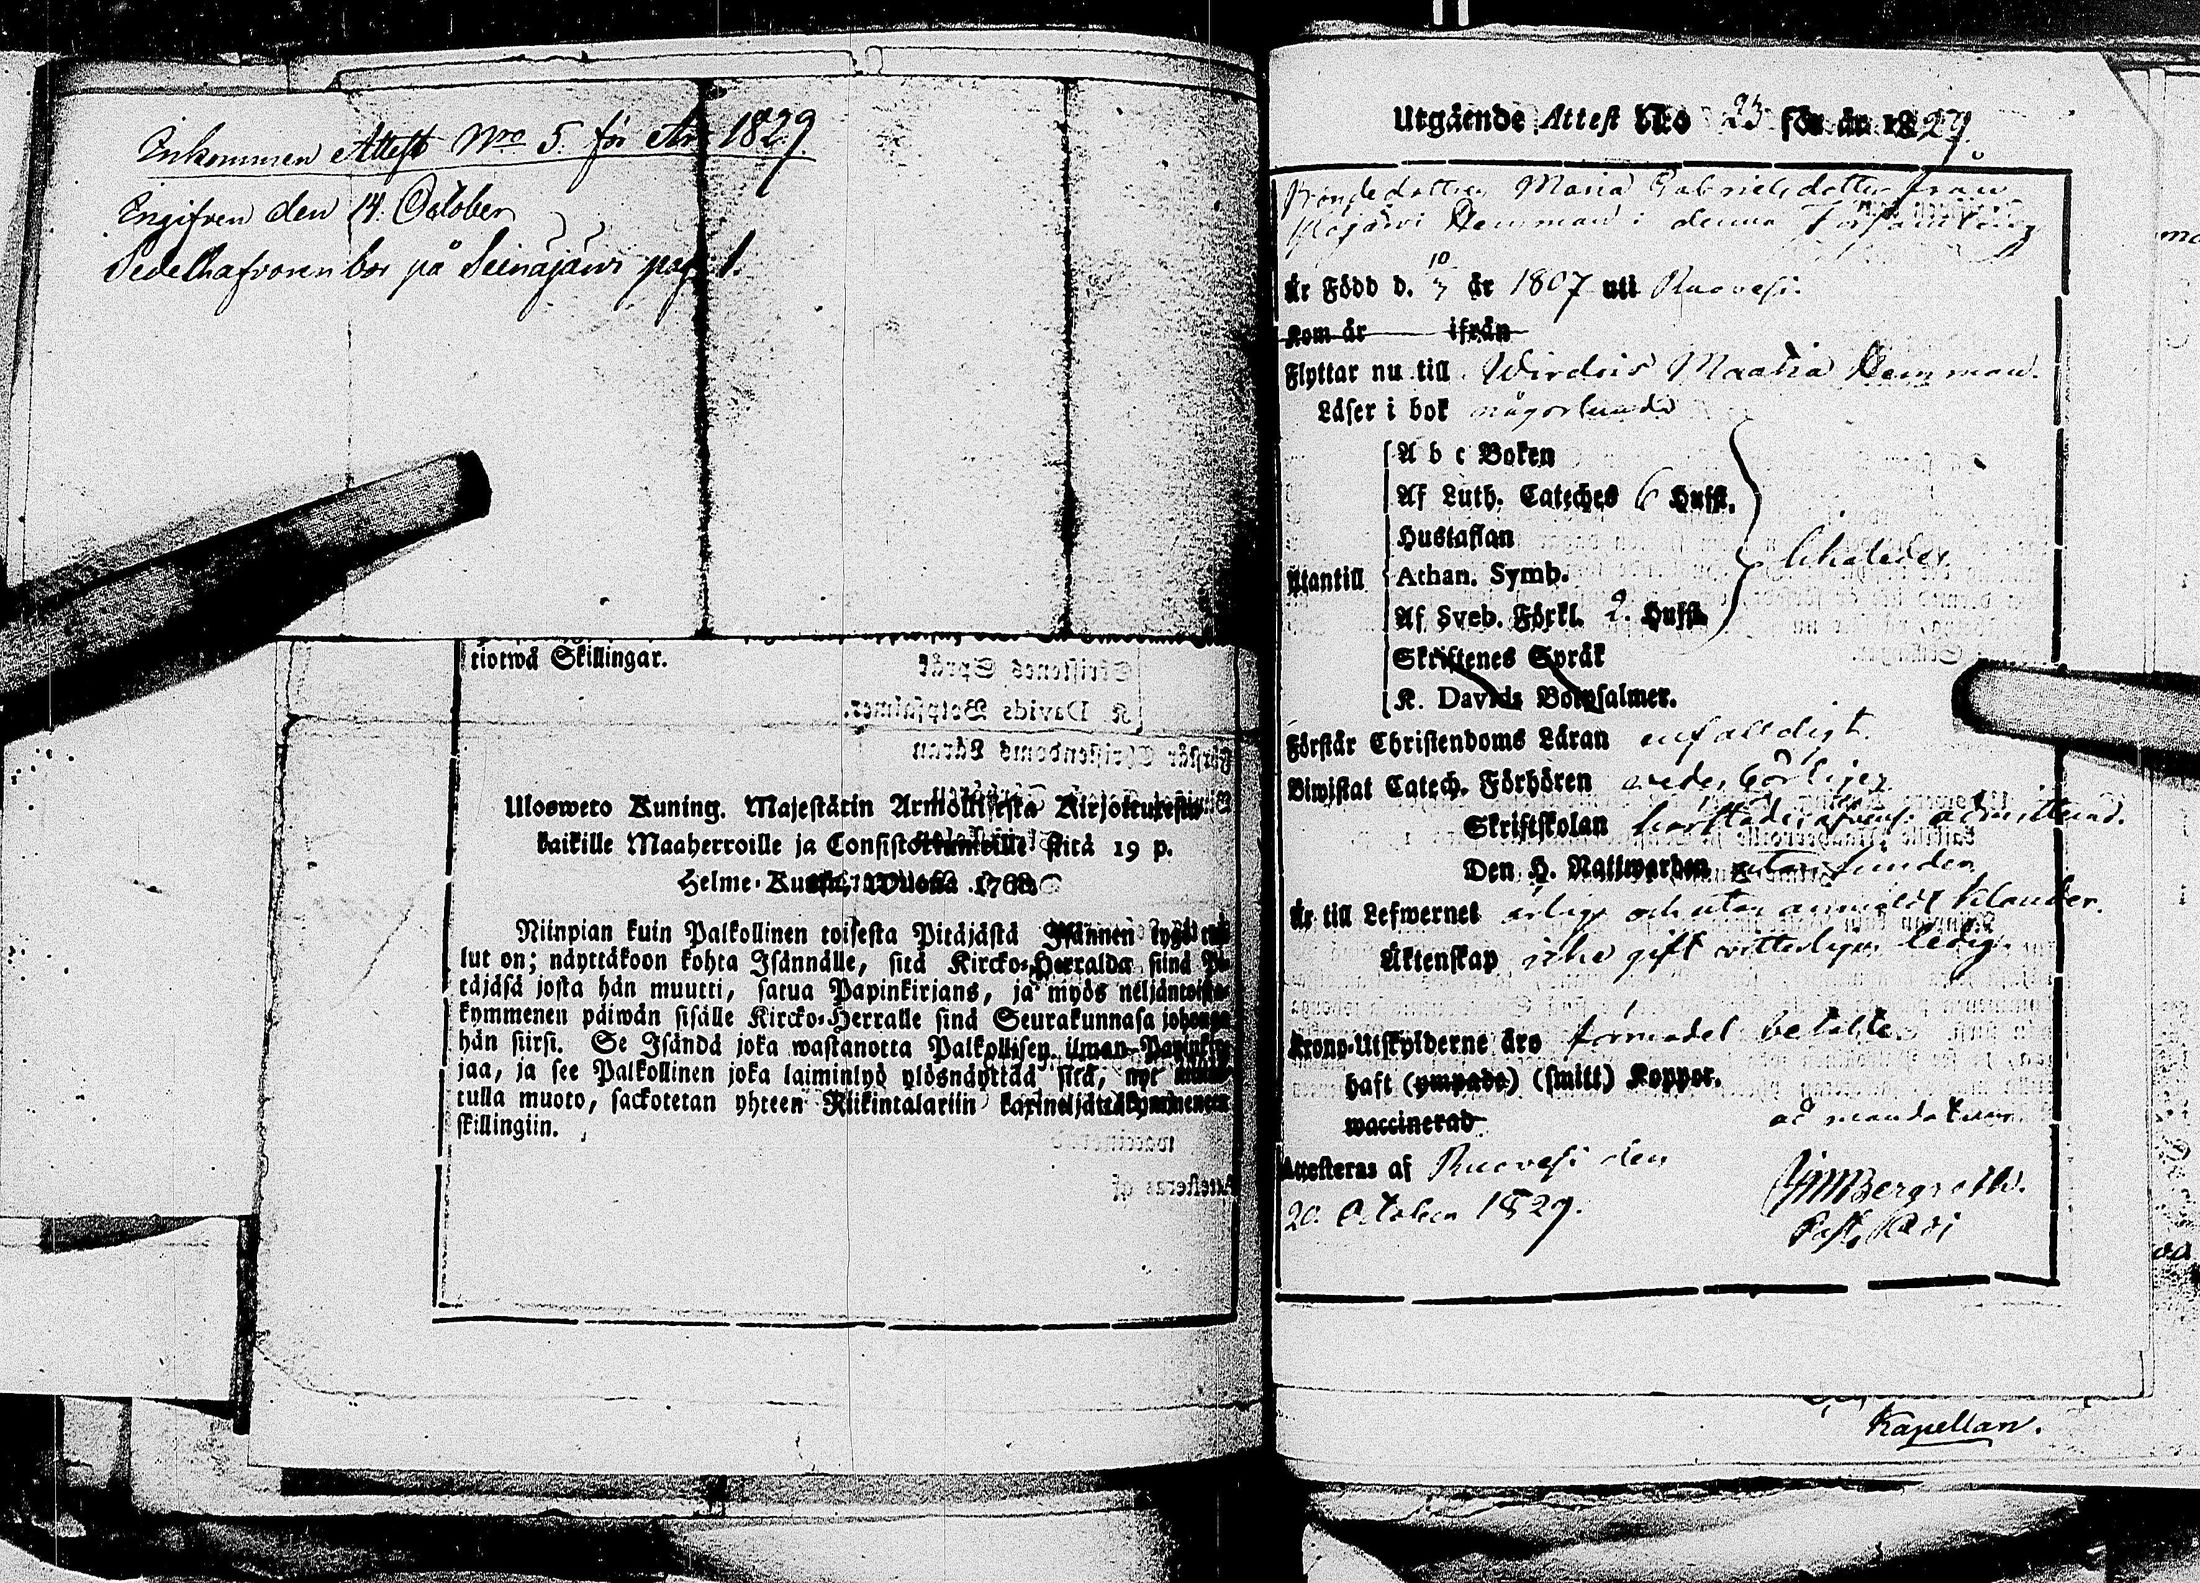 Inkommen Attest Nro 5. för År 1829
Ingifven den 14. October
Sedelhafvaren bor på Seinäjäwi pag. 1.
tiotwå Skillingar.
Ulosweto Kuning. Majestätin Armollisesta Kirjoituresta
kaikille Maaherroille ja Consistoriumeille sitä 19 p.
Helme-Kuusa, Wuonna 1768
Niinpian kuin Palkollinen toisesta Pitäjästä Isännen tygö tul
lut on; näyttäkoon kohta Isännälle, sitä Kircko-Herralda siinä Pi-
täjäsä josta hän muutti, satua Papinkirjans, ja myös neljäntoista-
kymmenen päiwän sisälle Kircko-Herralle sinä Seurakunnasa johonga
hän siirsi. Se Isändä joka wastanotta Palkollisen ilman Papinkir-
jaa, ja see Palkollinen joka laiminlyö ylösnäyttää sitä, nyt
tulla muoto, sackotetan yhteen Riikintalariin karineljättäkymmeneen
skillingiin.
Utgående Attest No 23 för år 1829.
Bondedottren Maria Gabrielsdotter från
Hemman i denna Församling
Är Född d. 10/3 år 1807 uti Ruovesi.
Kom år ifrån
Flyttar nu till Wirdois Hemman.
Läser i bok någorlunda
A b c Boken
Af Luth. Cateches 6 Hufst.
Hustaflan
Utantill Athan. Symb.
Af Sveb. Förkl. 2. Hufst.
Skriftenes Språk
K. Davids Botpsalmer.
Förstår Christendoms Läran enfalldigt.
Biwistat Catech. Förhören vederbörligen
Skriftskolan
Den H. Nattwarden
Är till Lefwernet ärlig och utan klander.
Äktenskap icke gift witterligen ledig.
Krono-Utskylderne äro förmodel. betalte
haft (ympade) (smitt) Koppor.
waccinerad
ad mandatum
Attesteras af Ruovesi den
20. October 1829.
Bergroth.
Past. Adj
Kapellan.